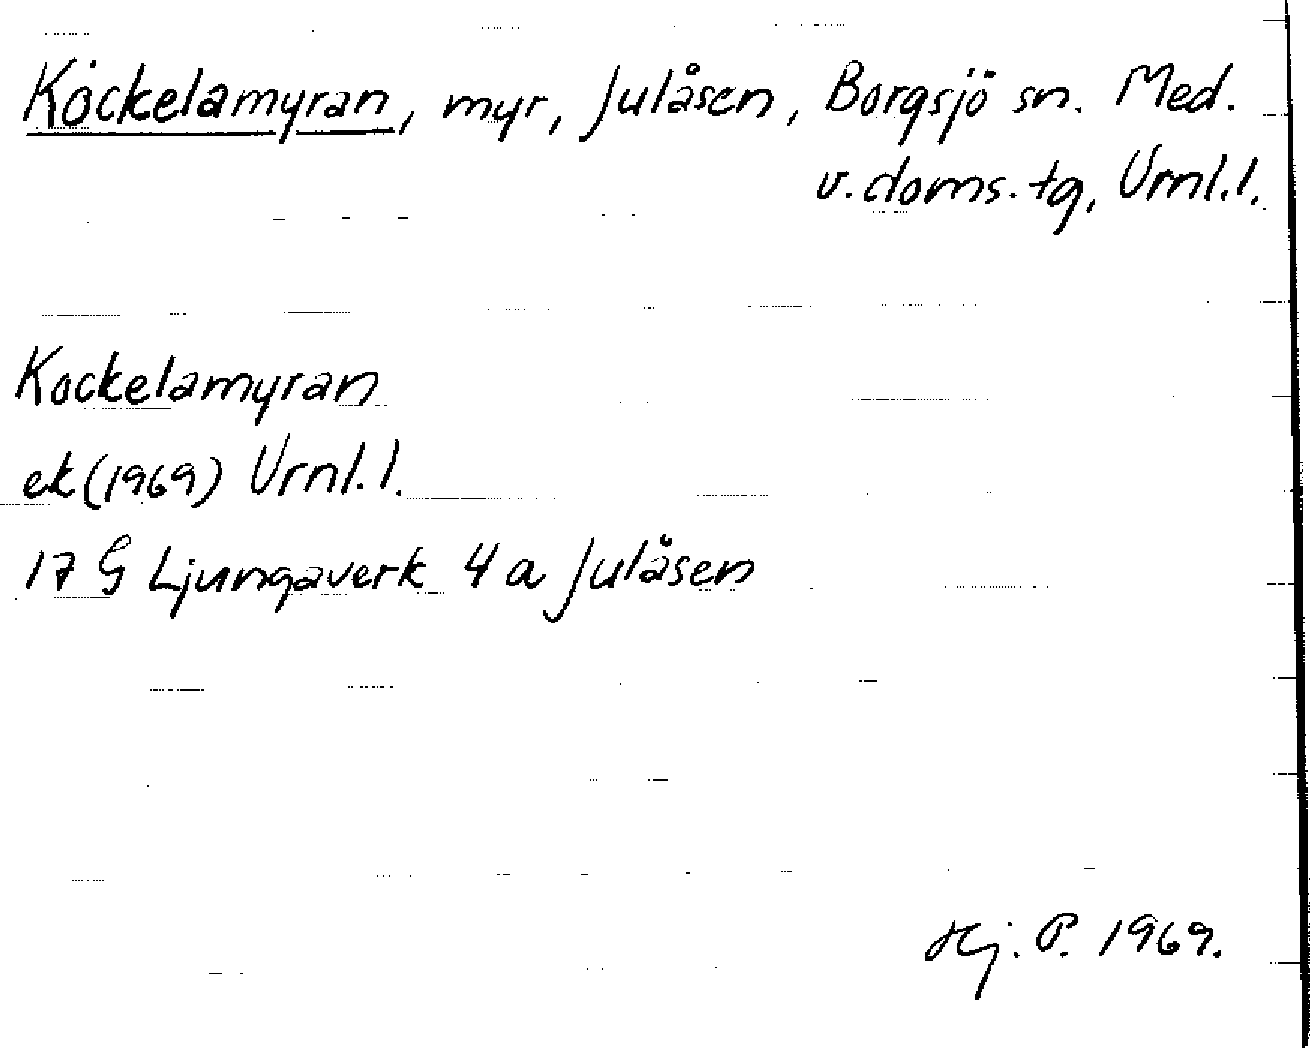 Kȯckelamyran, myr, Julåsen, Borgsjö sn. Med.
v. doms. tg, Vrnl.l.
Kockelamyran
ek (1969) Vrnl.l.
17 G Ljungaverk 4 a Julåsen
Hj. P. 1969.